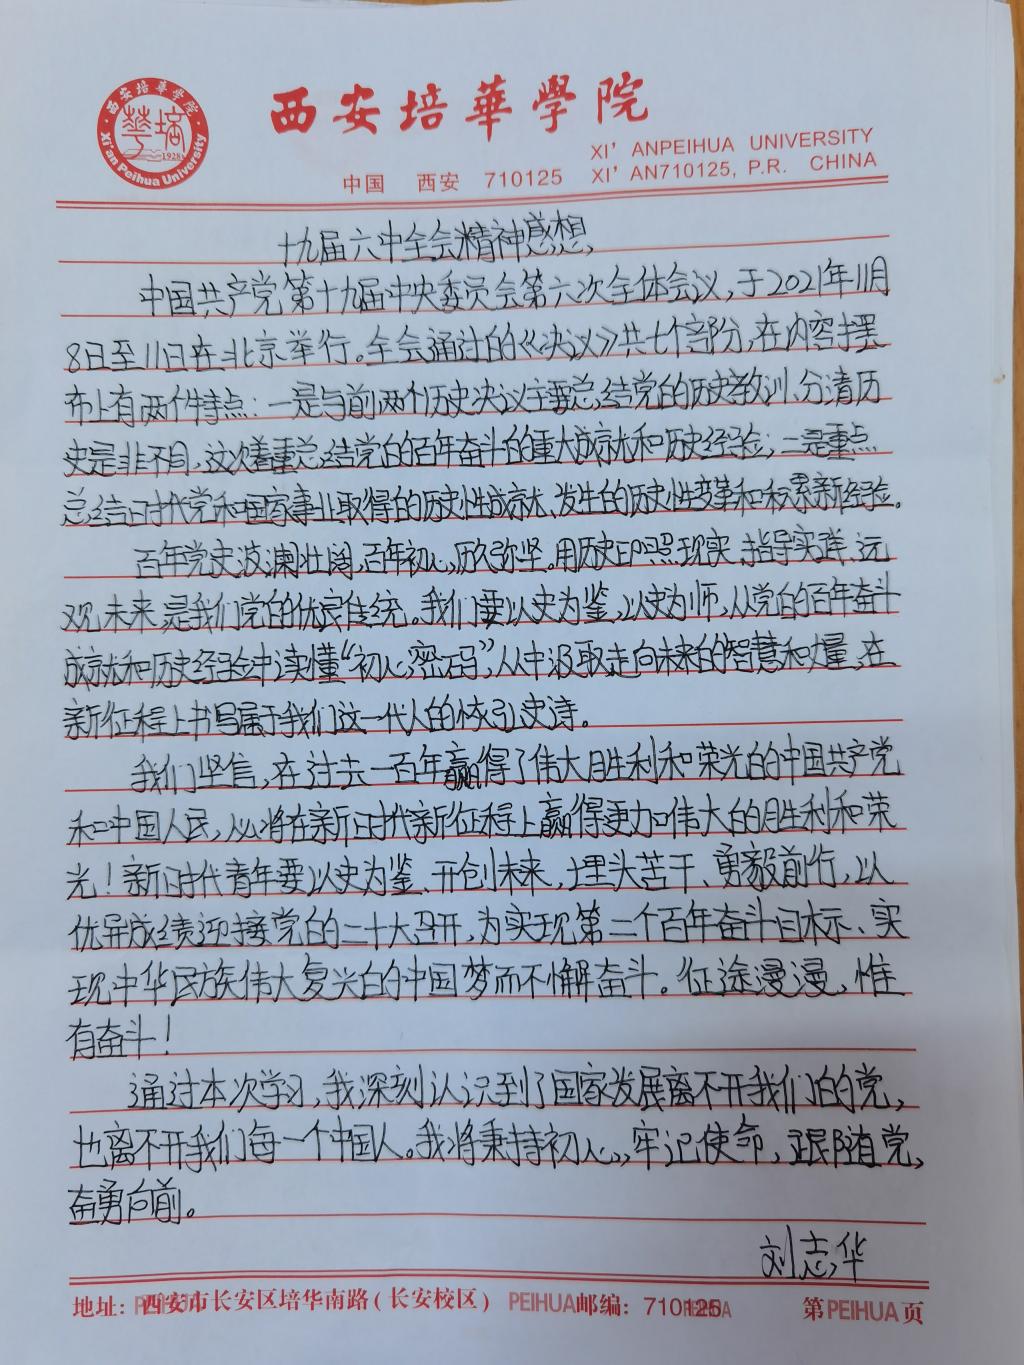 西安培華學院
·西安培華学院·
1928
Xi'an Peihua University
XI' ANPEIHUA UNIVERSITY
中国 西安 710125 XI' AN710125, P.R. CHINA
十九届六中全会精神感想
中国共产党第十九届中央委员会第六次全体会议,于2021年11月
8日至11日在北京举行。全会通过的《决议》共七个部分,在内容摆
布上有两个特点:一是与前两个历史决议主要总结党的历史教训、分清历
史是非不同,这次着重总结党的百年奋斗的重大成就和历史经验;二是重点
总结新时代党和国家事业取得的历史性成就、发生的历史性变革和积累新经验。
百年党史波澜壮阔,百年初心历久弥坚。用历史印照现实、指导实践、远
观未来是我们党的优良传统。我们要以史为鉴,以史为师,从党的百年奋斗
成就和历史经验中读懂“初心密码”,从中汲取走向未来的智慧和力量,在
新征程上书写属于我们这一代人的恢弘史诗。
我们坚信,在过去一百年赢得了伟大胜利和荣光的中国共产党
和中国人民,必将在新时代新征程上赢得更加伟大的胜利和荣
光!新时代青年要以史为鉴、开创未来,埋头苦干、勇毅前行,以
优异成绩迎接党的二十大召开,为实现第二个百年奋斗目标、实
现中华民族伟大复兴的中国梦而不懈奋斗。征途漫漫,惟
有奋斗!
通过本次学习,我深刻认识到了国家发展离不开我们的党,
也离不开我们每一个中国人。我将秉持初心,牢记使命,跟随党,
奋勇向前。
刘志华
地址:西安市长安区培华南路(长安校区) PEIHUA邮编:710125 第PEIHUA页